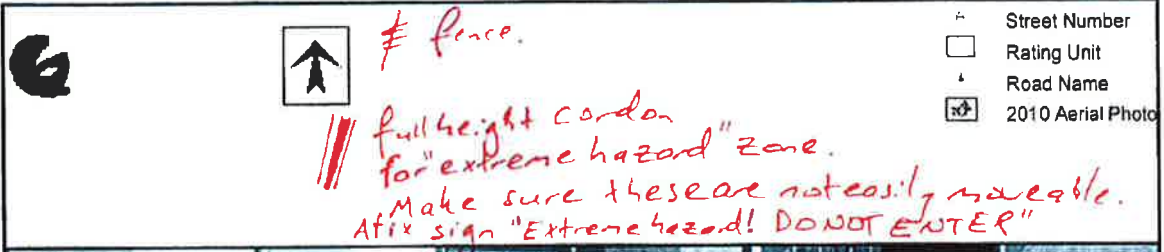 fence.
full height cordon
for "extreme hazard" zone.
Make sure these are not easily moveable.
Afix sign "Extreme hazard! DO NOT ENTER"
Street Number
Rating Unit
Road Name
2010 Aerial Photo